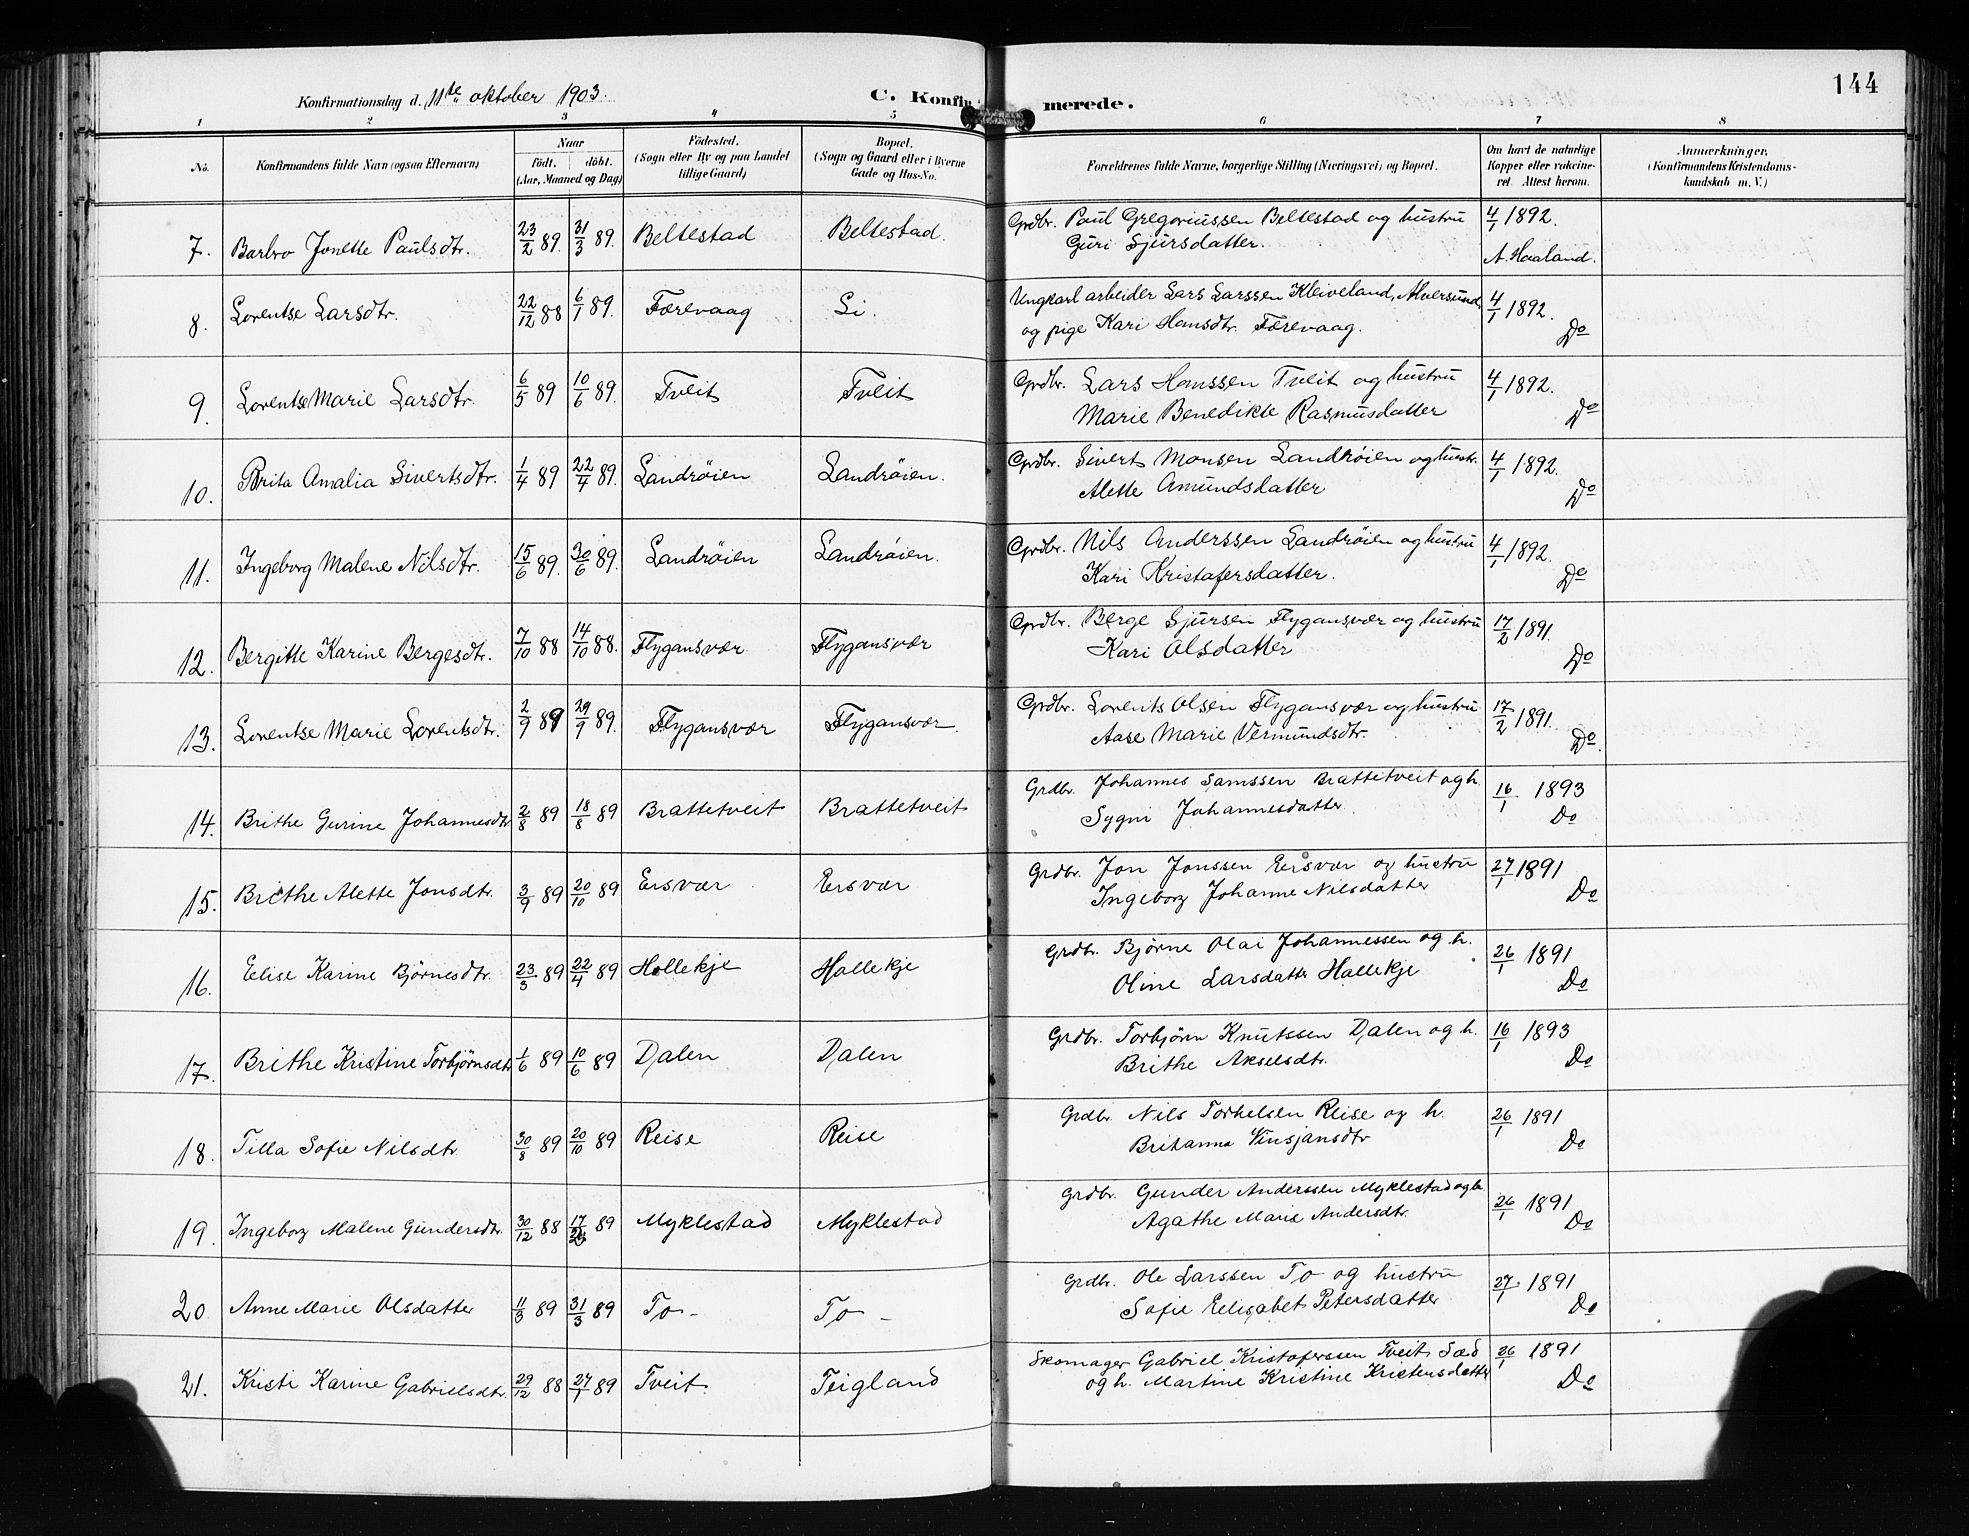 144
Konfirmationsdag d. 11te oktober 1903. C. Konfirmerede.
1 2 3 4 5 6 7 8
No. Konfirmandens fulde Navn (ogsaa Efternavn) Naar födt. döbt. (Aar, Maaned og Dag) Födested. (Sogn eller By og paa Landet tillige Gaard) Bopæl. (Sogn og Gaard eller i Byerne Gade og Hus-No. Forældrenes fulde Navne, borgerlige Stilling (Næringsvei) og Bopæl. Om havt de naturlige Kopper eller vakcineret. Attest herom. Anmærkninger. (Konfirmandens Kristendomskundskab m. V.)
7. Barbro Jonette Paulsdtr. 23/2 89. 31/3 89. Beltestad Beltestad. Grdbr. Paul Gregoriussen Beltestad og hustru 4/1 1892.
Guri Sjursdatter. A. Haaland.
8. Lorentse Larsdtr. 22/12 88 6/1 89. Færevaag Li. Ungkarl arbeider Lars Larssen Kleiveland, Alversund 4/1 1892.
og pige Kari Hansdtr. Færevaag. Do
9. Lorentse Marie Larsdtr. 6/5 89 10/6 89. Tveit Tveit Grdbr. Lars Hanssen Tveit og hustru 4/1 1892.
Marie Benedikte Rasmusdatter Do
10. Brita Amalia Sivertsdtr. 1/4 89 22/4 89. Landröien Landröien. Grdbr. Sivert Monsen Landröien og hustr. 4/1 1892.
Alette Amundsdatter Do
11. Ingeborg Malene Nilsdtr. 15/6 89. 30/6 89. Landröien Landröien. Grdbr. Nils Anderssen Landröien og hustru 4/1 1892.
Kari Kristafersdatter. Do
12. Bergitte Karine Bergesdtr. 7/10 88 14/10 88. Flygansvær Flygansvær Grdbr. Berge Sjursen Flygansvær og hustru 17/2 1891.
Kari Olsdatter Do
13. Lorentse Marie Lorentsdtr. 2/9 89 29/9 89. Flygansvær Flygansvær. Grdbr. Lorents Olsen Flygansvær og hustru 17/2 1891.
Aase Marie Vermundsdtr. Do.
14. Brithe Gurine Johannesdtr 2/8 89 18/8 89 Brattetveit Brattetveit Grdbr. Johannes Samssen Brattetveit og h. 16/1 1893
Sygni Johannesdatter. Do
15. Brithe Alette Jonsdtr. 3/9 89 20/10 89 Ersvær Ersvær Grdbr. Jon Jonssen Ersvær og hustru 27/1 1891
Ingeborg Johanne Nilsdatter Do
16. Eelise Karine Bjørnesdtr. 23/3 89 22/4 89 Hallekje Hallekje Grdbr. Bjørne Olai Johannessen og h. 26/1 1891
Oline Larsdatter Hallekje Do
17. Brithe Kristine Torbjørnsdtr 1/6 89 10/6 89 Dalen Dalen Grdbr. Torbjørn Knutssen Dalen og h. 16/1 1893
Brithe Akselsdtr. Do
18. Tilla Sofie Nilsdtr. 30/8 89 20/10 89 Reise Reise Grdbr. Nils Torkelsen Reise og h. 26/1 1891
Britanna Vinsjansdtr Do
19. Ingeborg Malene Gundersdtr. 30/12 88 17/2 89 Myklestad Myklestad Grdbr. Gunder Anderssen Myklestad og h. 26/1 1891
Agathe Marie Andersdtr. Do
20 Anne Marie Olsdatter 11/3 89 31/3 89 To- To- Grdbr. Ole Larssen To og hustru 27/1 1891
Sofie Eelisabet Petersdatter Do
21. Kristi Karine Gabrielsdtr. 29/12 88 27/1 89 Tveit. Teigland Skomager Gabriel Kristoferssen Tveit Sæd 26/1 1891
og h. Martine Kristine Kristensdatter Do